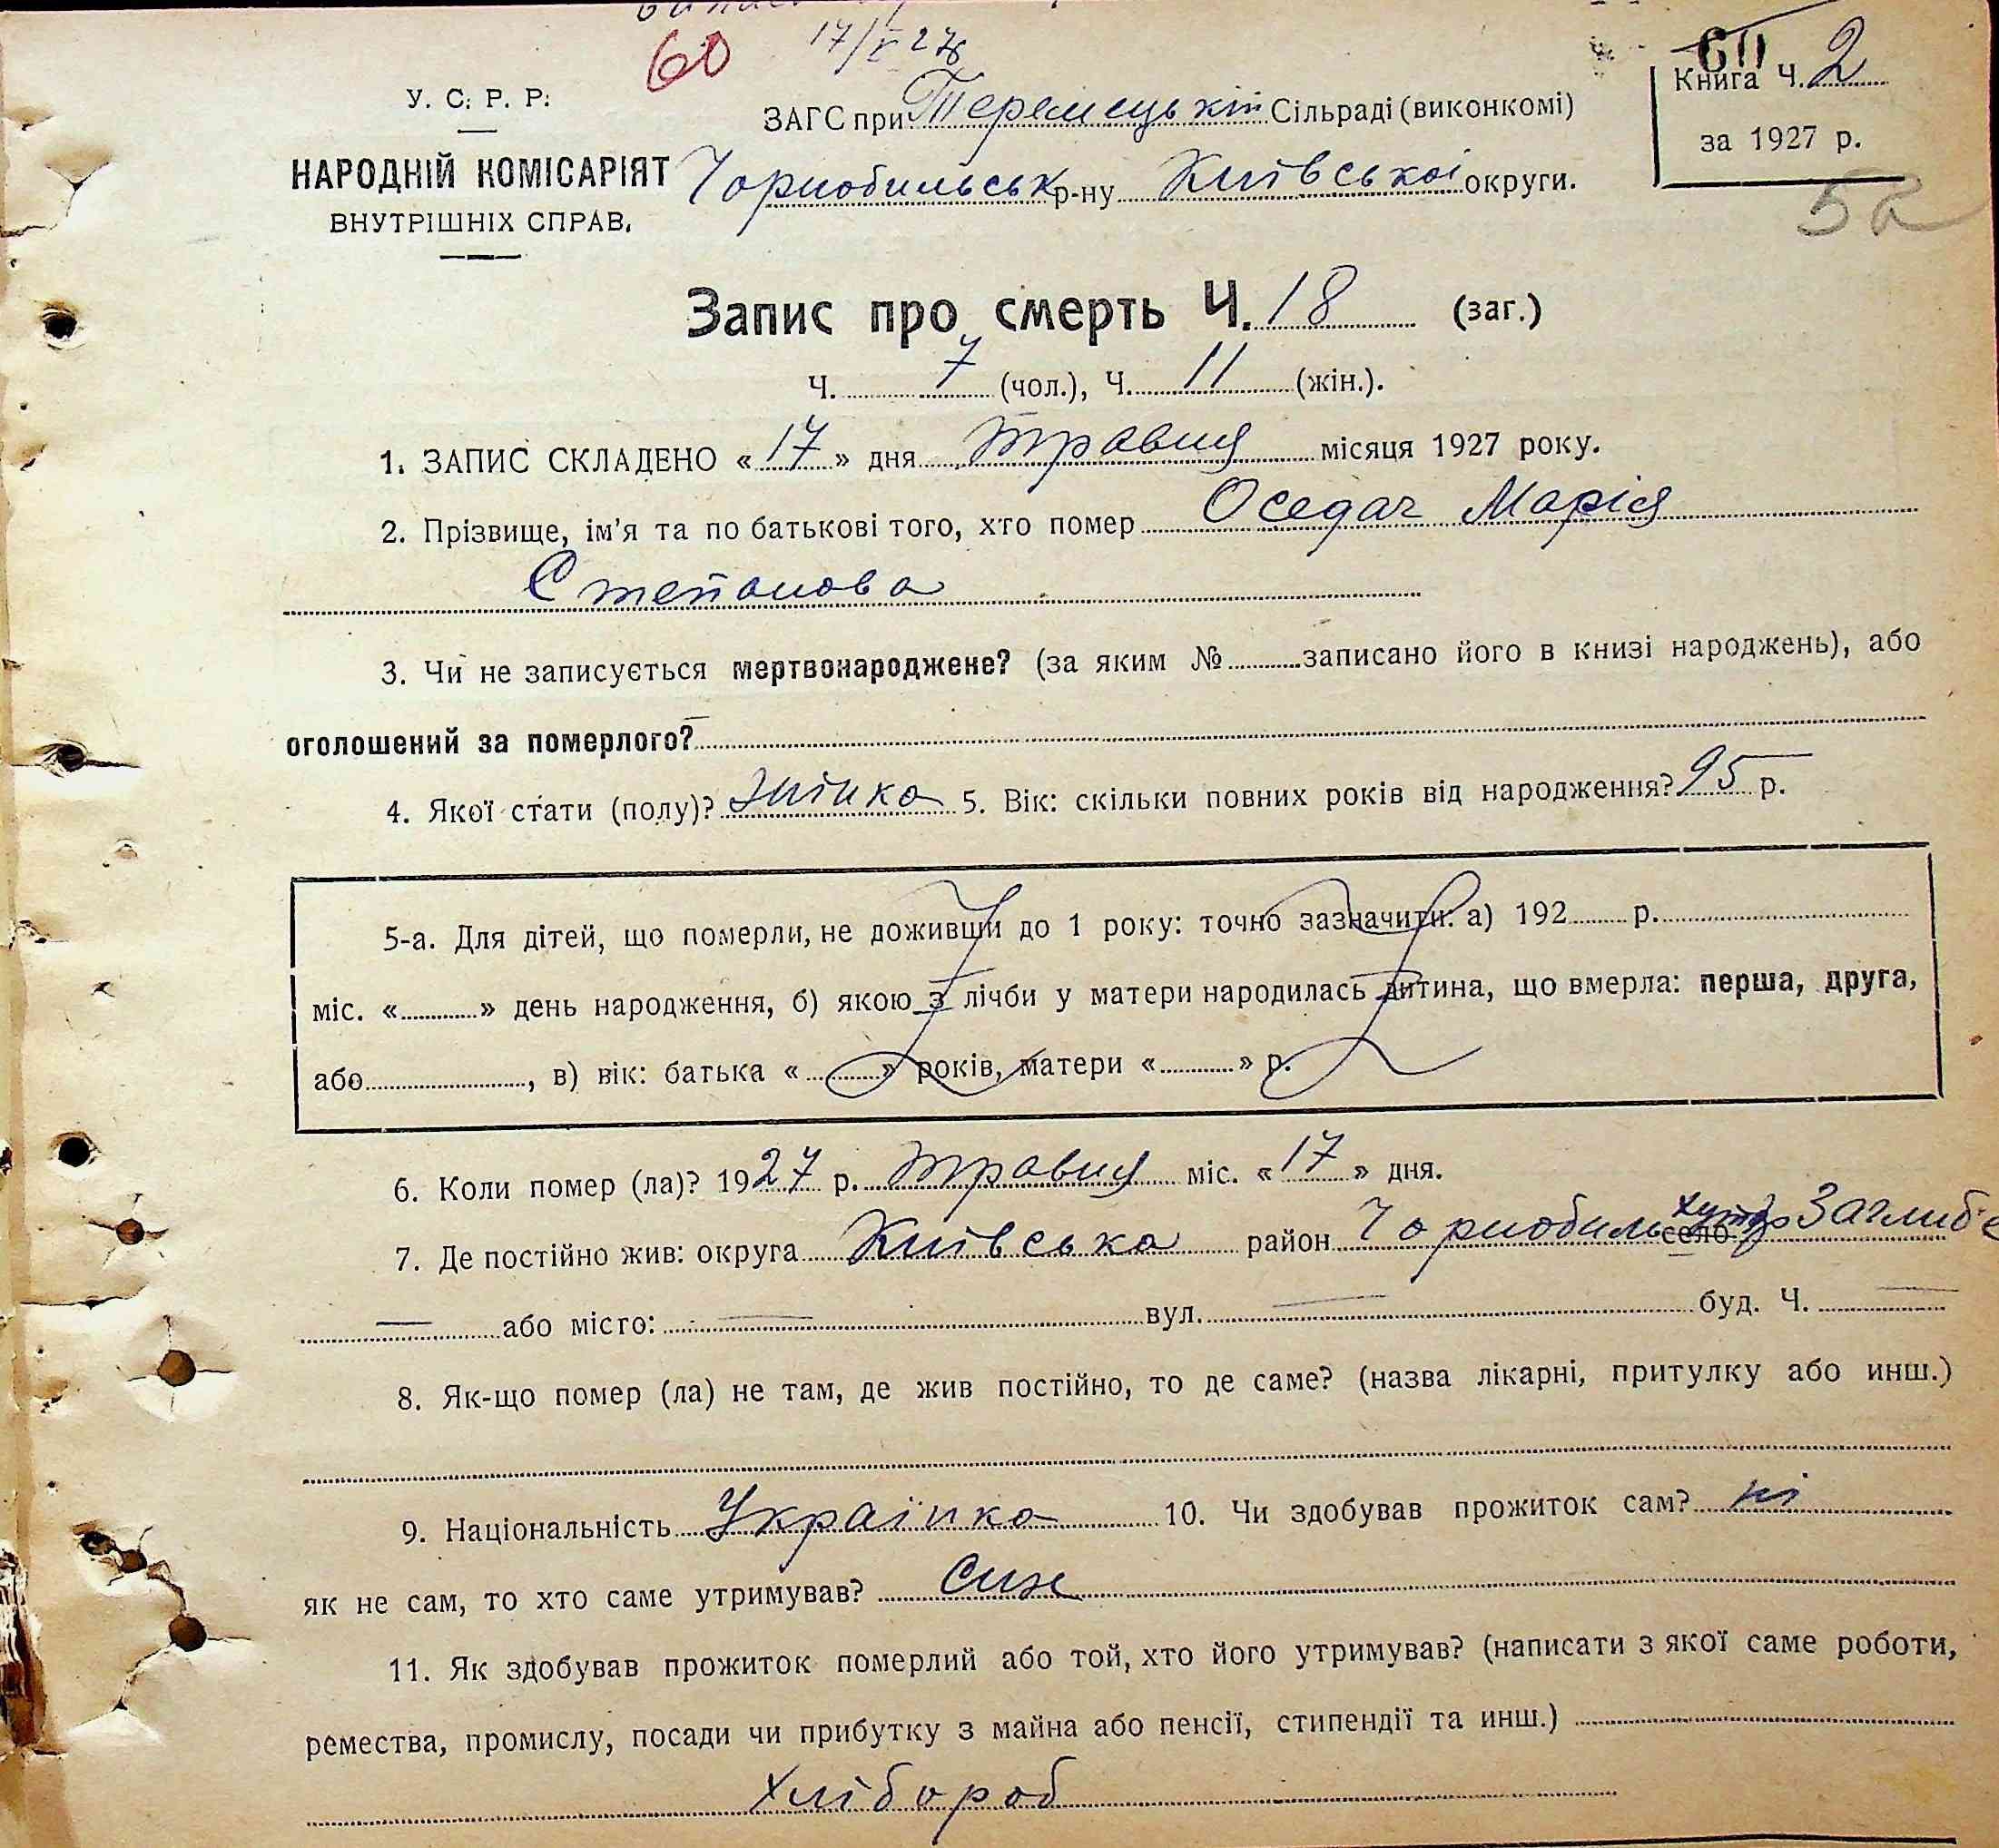 60
17/V 27
60
У. С. Р. Р.
ЗАГС при Теремецькій Сільраді (виконкомі)
Книга Ч. 2
за 1927 р.
НАРОДНІЙ КОМІСАРІЯТ
ВНУТРІШНІХ СПРАВ.
Чорнобильськ р-ну Київської округи.
Запис про смерть Ч. 18 (заг.)
Ч. 7 (чол.), Ч. 11 (жін.).
1. ЗАПИС СКЛАДЕНО « 17 » дня травня місяця 1927 року.
2. Прізвище, ім'я та по батькові того, хто помер Оседач Марія
Степанова
3. Чи не записується мертвонароджене? (за яким № записано його в книзі народжень), або
оголошений за померлого?
4. Якої стати (полу)? жінка 5. Вік: скільки повних років від народження? 95 р.
5-а. Для дітей, що померли, не доживши до 1 року: точно зазначити: а) 192 р.
міс. « » день народження, б) якою з лічби у матери народилась дитина, що вмерла: перша, друга,
або , в) вік: батька « » років, матери « » р.
6. Коли помер (ла)? 1927 р. травня міс. « 17 » дня.
7. Де постійно жив: округа Київська район Чорнобиль село хутір Заглиб'є
— або місто: — вул. — буд. Ч. —
8. Як-що помер (ла) не там, де жив постійно, то де саме? (назва лікарні, притулку або инш.)
9. Національність Українка 10. Чи здобував прожиток сам? ні
як не сам, то хто саме утримував? син
11. Як здобував прожиток померлий або той, хто його утримував? (написати з якої саме роботи,
ремества, промислу, посади чи прибутку з майна або пенсії, стипендії та инш.)
хлібороб